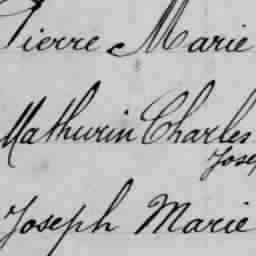 Pierre Marie
Mathurin Charles
Josep
Joseph Marie